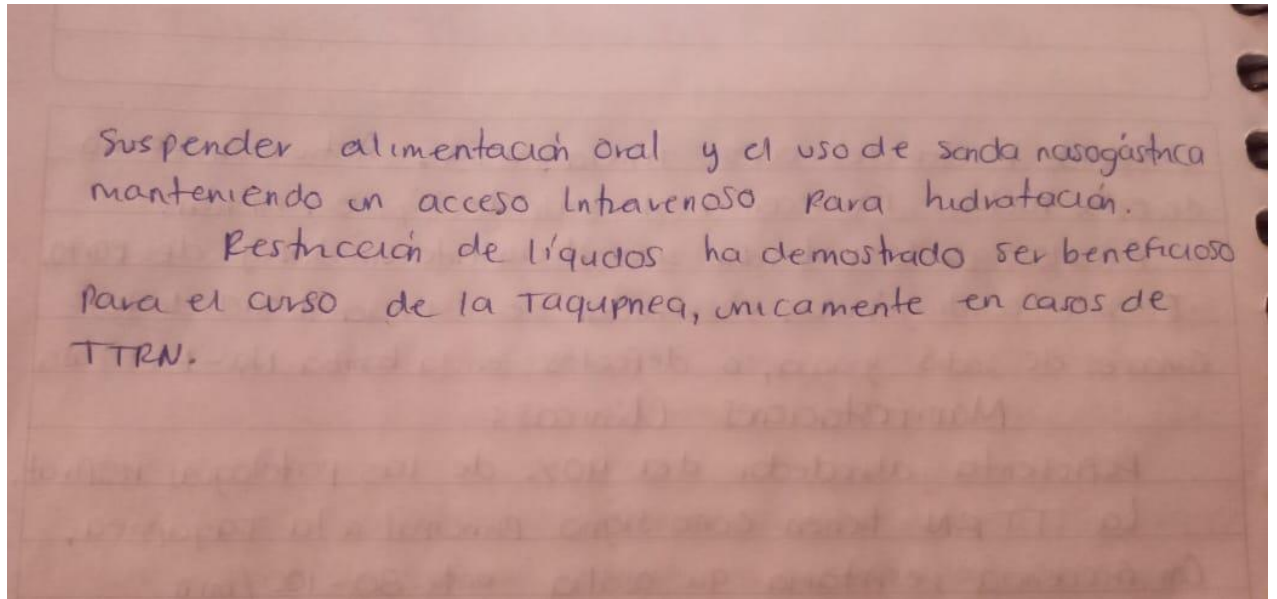 Suspender alimentación oral y el uso de sonda nasogástrica
manteniendo un acceso Intravenoso para hidratación.
Restricción de líquidos ha demostrado ser beneficioso
para el curso de la Taquipnea, unicamente en casos de
TTRN.